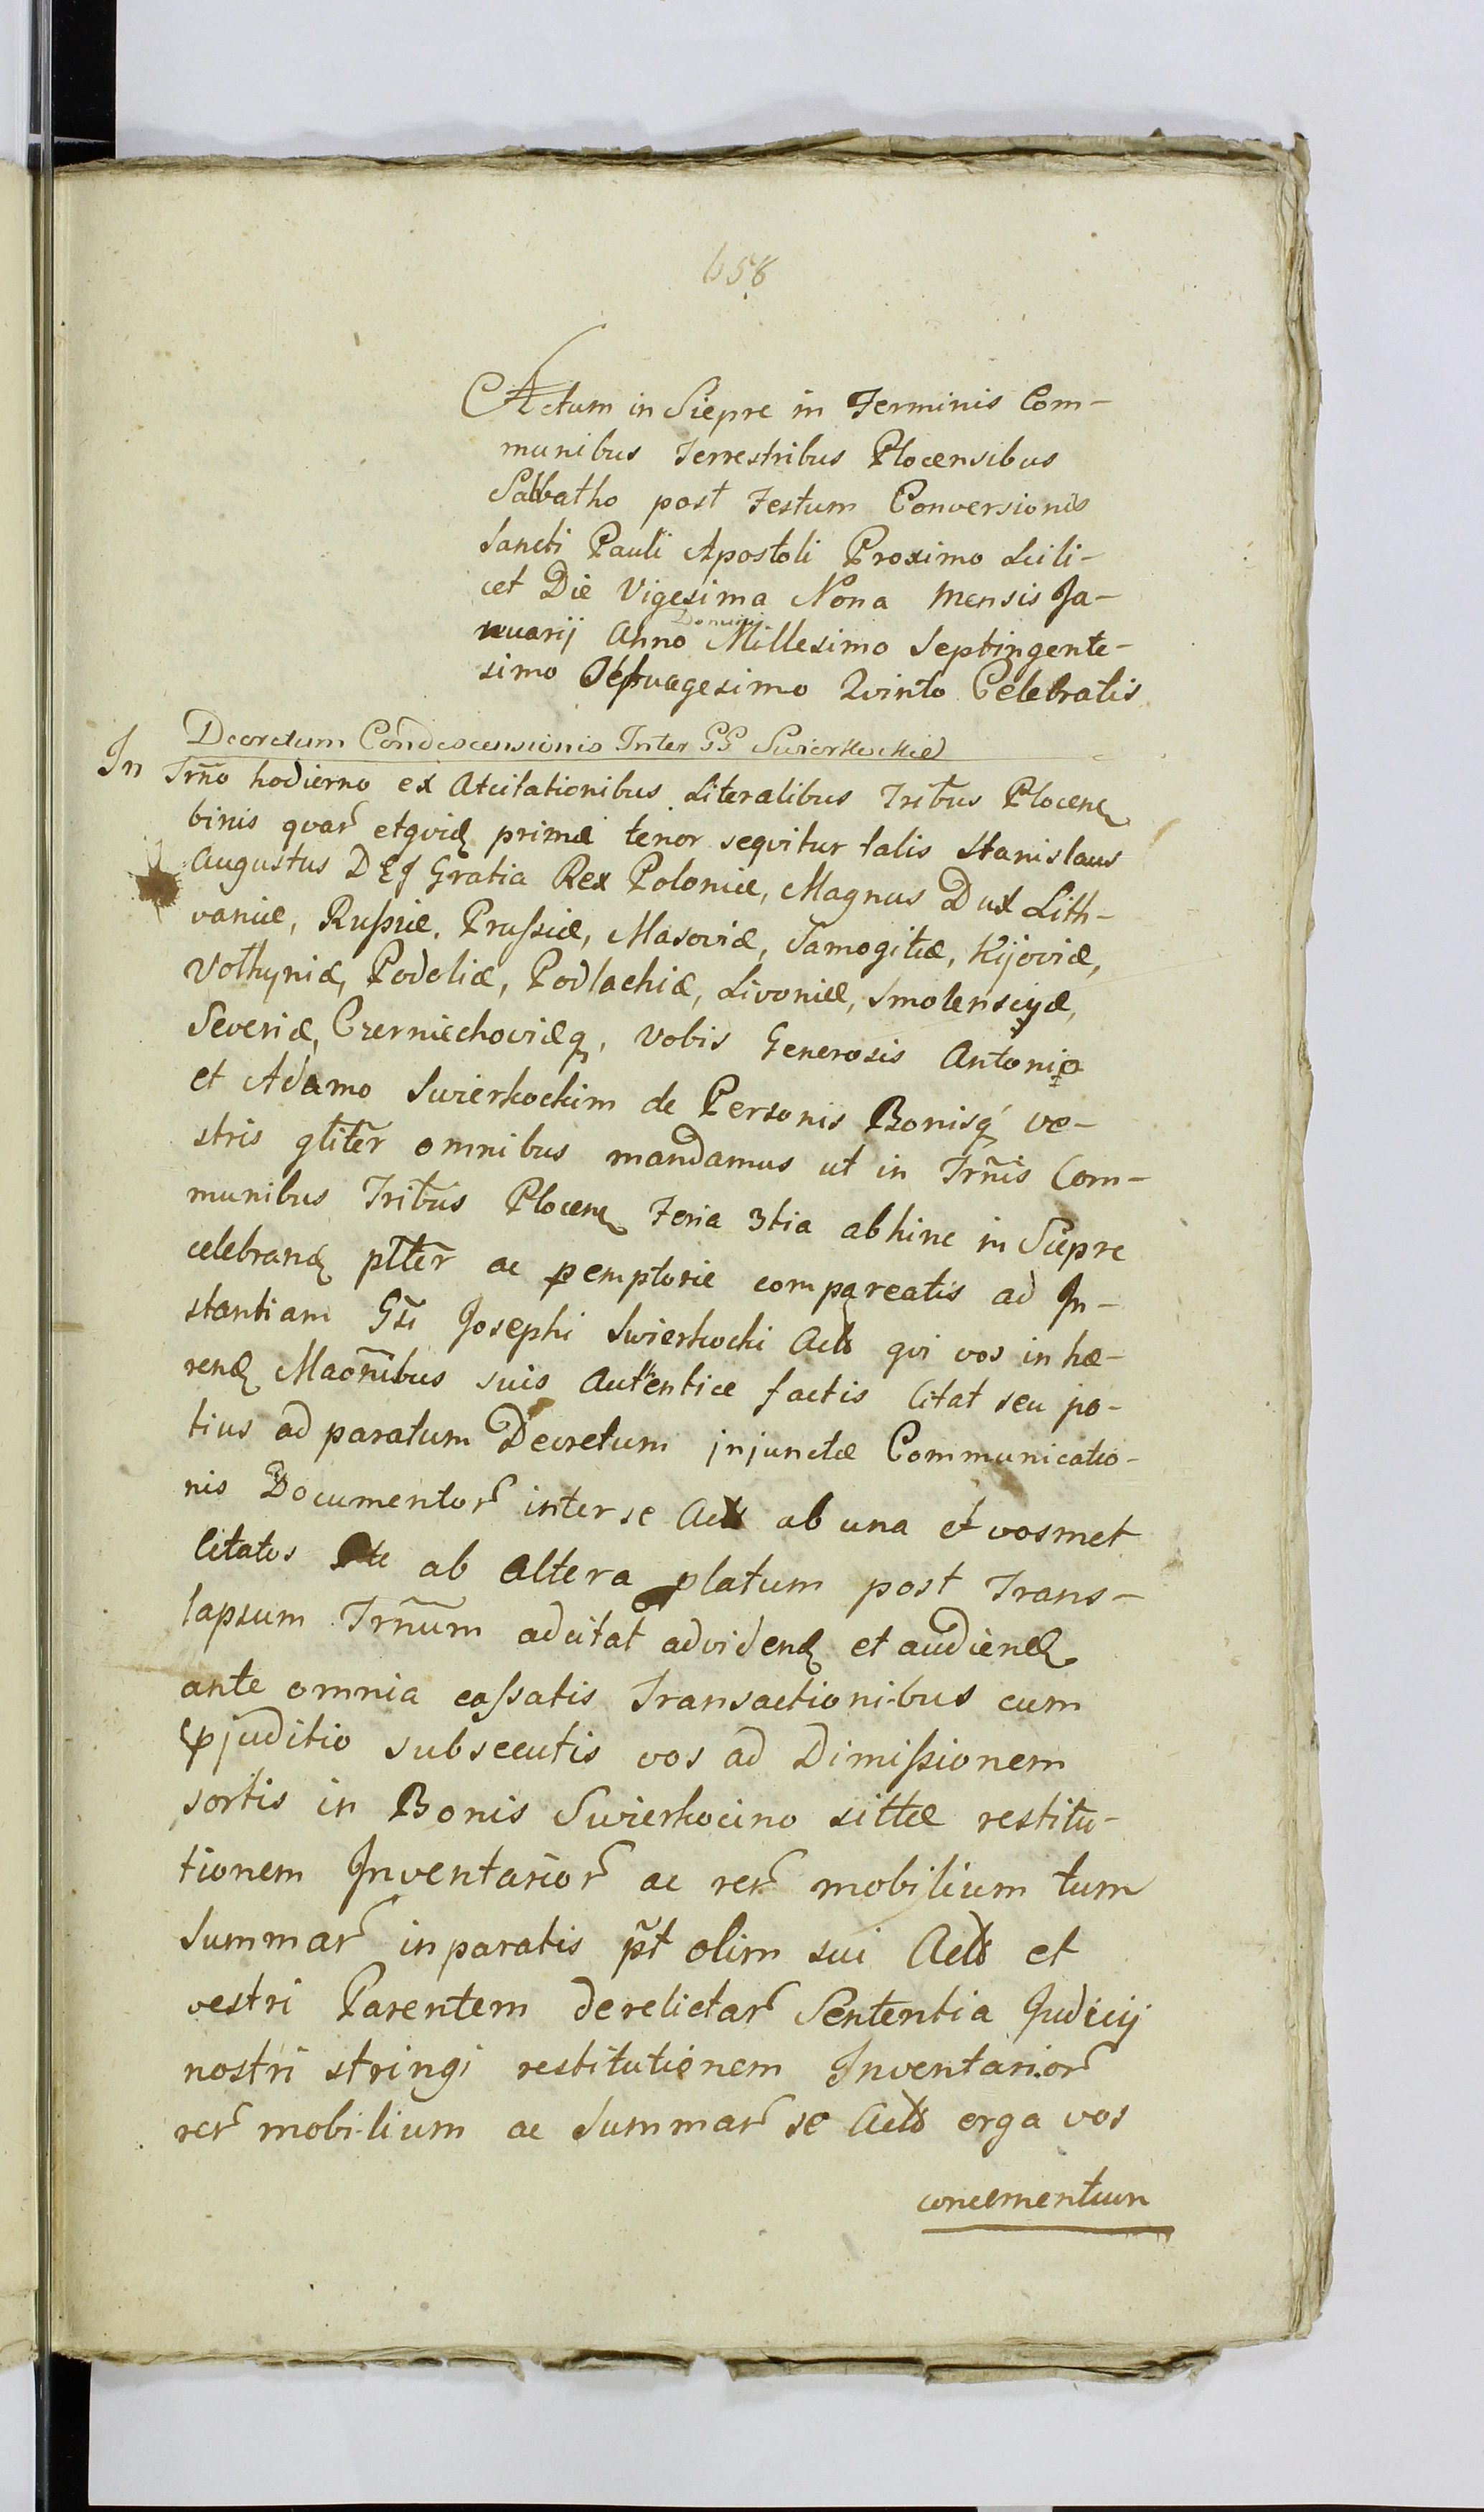 658
Actum in Siepre in Terminis Com-
munibus Terrestribus Plocensibus
Sabbatho post Festum Conversionis
Sancti Pauli Apostoli Proximo Scili-
cet Die Vigesima Nona Mensis Ja-
nuarij Anno Domini Millesimo Septingente-
simo Septuagesimo Qvinto Celebratis
Decretum Condescensionis Inter GG Swierkockie
In Trño hodierno ex Atcitationibus Literalibus Tritus Plocen
binis qvar etqvid primæ tenor seqvitur talis Stanislaus
Augustus DEJ Gratia Rex Poloniæ, Magnus Dux Lith-
vaniæ, Rußiæ, Prußiæ, Masoviæ, Samogitiæ, Kijoviæ,
Volhyniæ, Podoliæ, Podlachiæ, Livoniæ, Smolensciæ,
Severiæ, Czerniechoviæq, Vobis Generosis Antonio
et Adamo Swierkockim de Personis Bonisq ve-
stris gliter omnibus mandamus ut in Trñis Com-
munibus Tritus Plocen Feria 3tia abhinc in Siepre
celebrand ptter ac pemptorie compareatis ad Jn-
stantiam Gsi Josephi Swierkocki Act qvi vos in hæ-
rend Maõnibus suis Autentice factis Citat seu po-
tius ad paratum Decretum injunctæ Communicatio-
nis Documentor inter se Act ab una et vosmet
Citatos ab altera platum post Trans-
lapsum Trñum adcitat advidend et audiend
ante omnia caßatis Transactionibus cum
pjuditio subsecutis vos ad Dimißionem
sortis in Bonis Swierkocino sittæ restitu-
tionem Jnventarior ac rer mobilium tum
Summar inparatis p̃t olim sui Act et
vestri Parentem derelictar Sententia Judicij
nostri stringi restitutionem Jnventarior
rer mobilium ac Summar se Act erga vos
concernentium